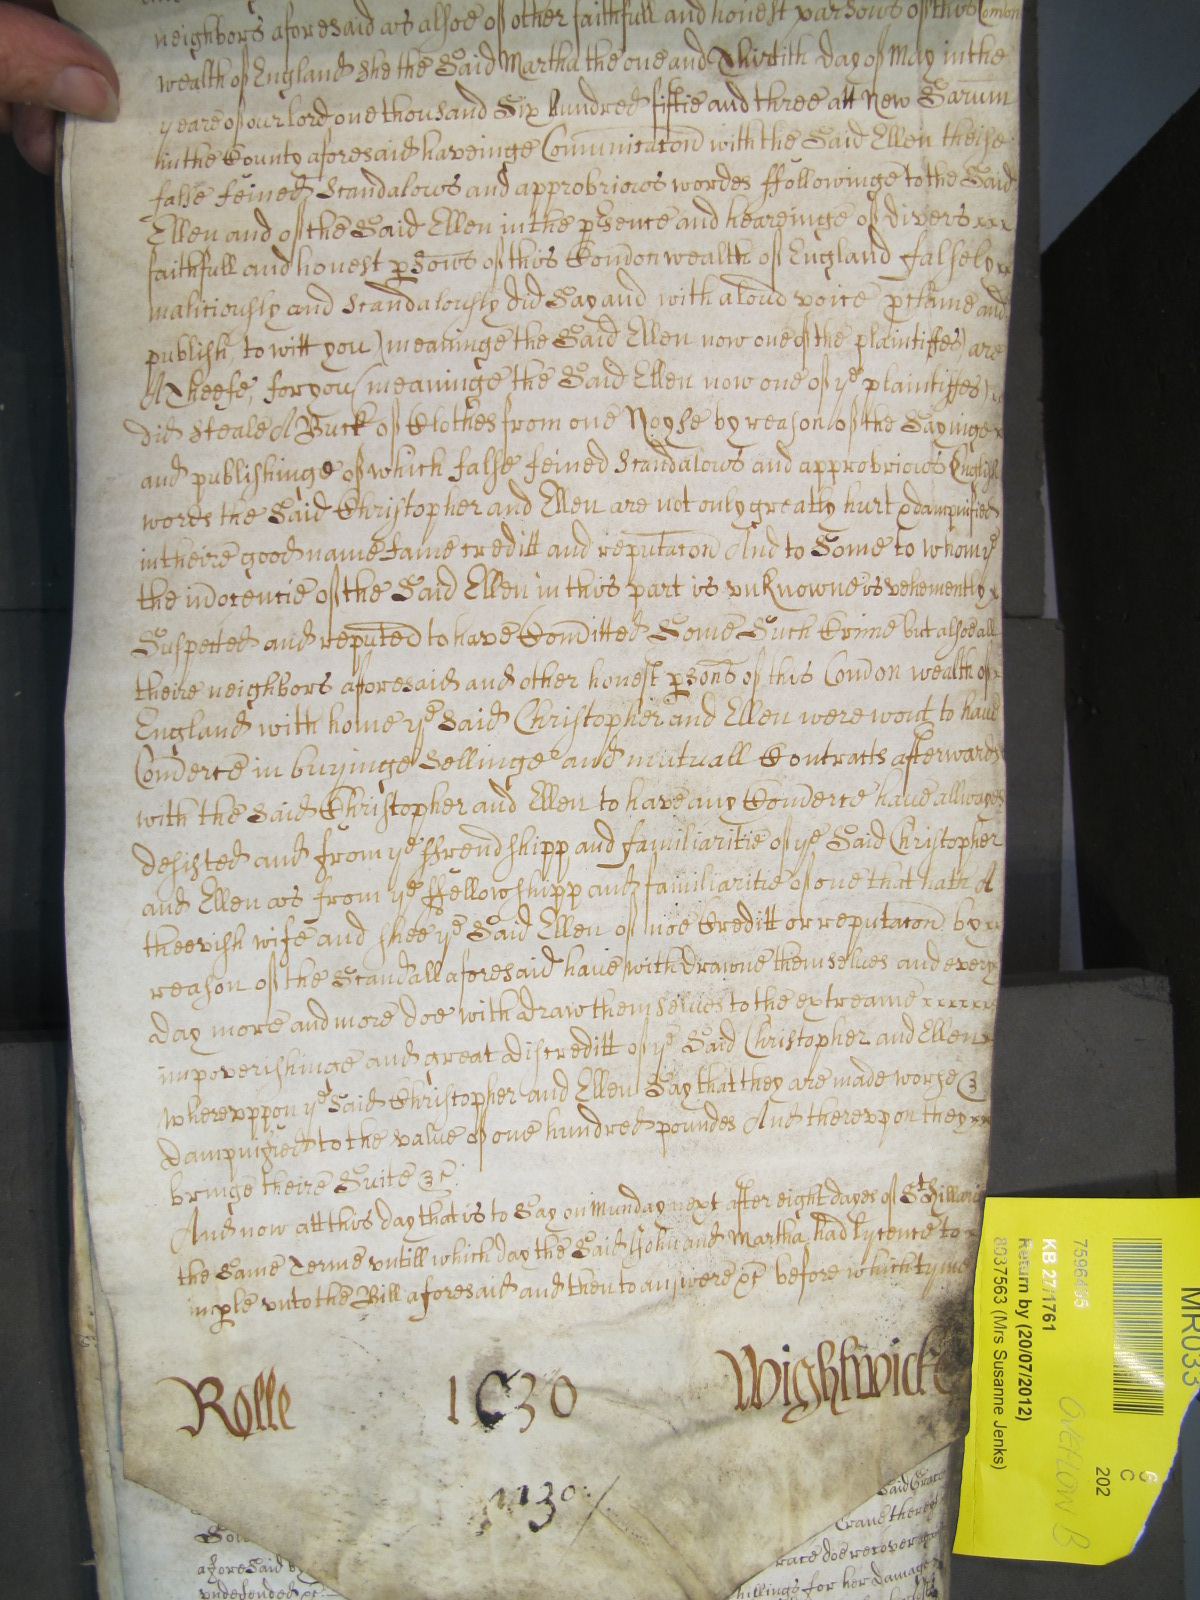 neighbors aforesaid as alsoe of other faithfull and honest parsons of this Comon
wealth of England she the Said Martha the one and Thirtith day of May in the
yeare of our lord one thousand Six hundred fiftie and three att New Sarum
in the County aforesaid haveinge Comunicacon with the Said Ellen theise
false feined Scandalows and approbriows wordes ffollowinge to the Said
Ellen and of the Said Ellen in the psence and heareinge of divers xxx
faithfull and honest psons of this Comon wealth of England falsely x
maliciously and Scandalously did Say and with a loud voice pclame and
publish, to witt you (meaninge the Said Ellen now one of the plaintiffes) are
A Theefe, for you (meaninge the Said Ellen now one of ye plaintiffes)
did Steale A Buck of Clothes from one Noyse by reason of the Sayinge x
and publishinge of which false feined Scandalows and approbriows English
words the Said Christopher and Ellen are not only greatly hurt & dampnified
in theire good name fame creditt and reputacon And to Some to whom ye
the inocencie of the Said Ellen in this part is vnknowne is vehemently x
Suspected and reputed to have Comitted Some Such Crime but alsoe all
theire neighbors aforesaid and other honest psons of this Comon wealth of
England with home ye Said Christopher and Ellen were wont to have
Comerce in buyinge Sellinge and mutuall Contracts afterwards
with the Said Christopher and Ellen to have any Comerce have allwayes
desisted and from ye ffrendshipp and familiaritie of ye Said Christopher
and Ellen as from ye ffellowshipp and familiaritie of one that hath A
theevish wife and shee ye Said Ellen of noe Creditt or reputacon by x
reason of the Scandall aforesaid have withdrawne themselves and every
day more and more doe withdraw themselves to the extreame xxxxxx
impoverishinge and great discreditt of ye Said Christopher and Ellen x
wherevppon ye Said Christopher and Ellen Say that they are made worse &
dampnified to the value of one hundred poundes And therevpon they xx
bringe theire Suite &c
And now att this day that is to Say on Munday next after eight dayes of St Hillarie
the Same Terme vntill which day the Said John and Martha had lycence to x
imple vnto the Bill aforesaid and then to answere &c before which tyme
Rolle 1030 Wightwick
1030
Said Grace
Crane
aforeSaid
race doe recover
vndefended &c
hillings for her damage
MR033
7596405
KB 27/1761
Return by (20/07/2012)
8037563 (Mrs Susanne Jenks)
OVERLOW B
C
202